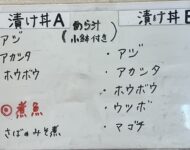 漬け丼A
あら汁
(小鉢付き)
アジ
アカシタ
ホウボウ
◎煮魚
さばのみそ煮
漬け丼B
・アジ
・アカシタ
・ホウボウ
・ウツボ
・マゴチ